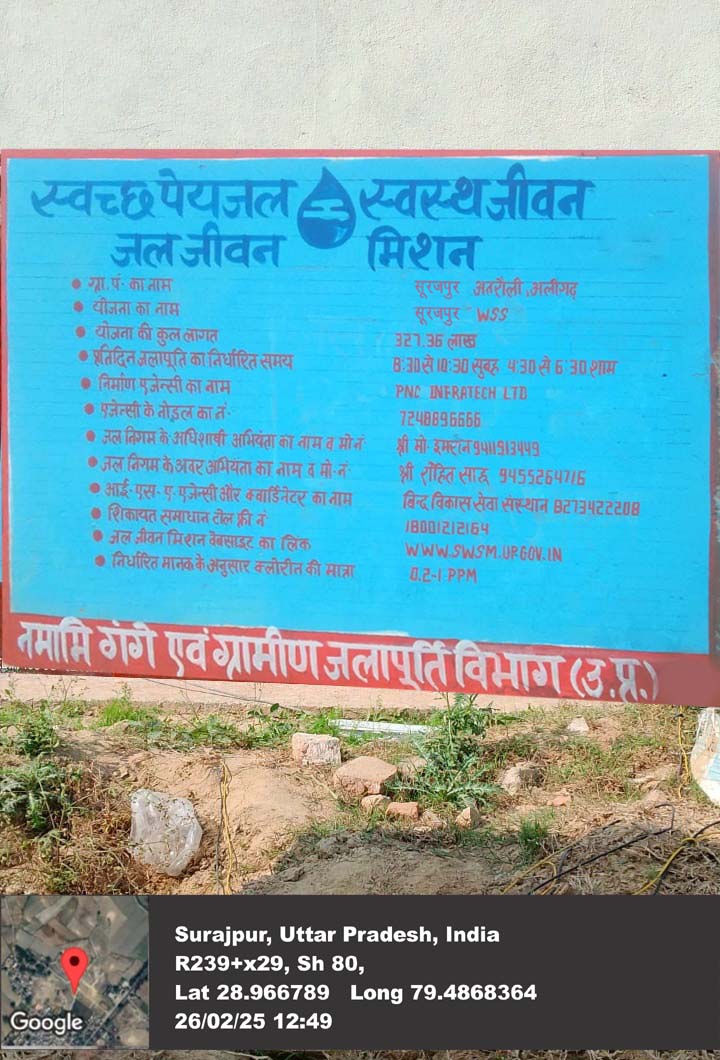 स्वच्छ पेयजल स्वस्थ जीवन
जल जीवन मिशन
● ग्रा. पं. का नाम सूरजपुर अतरौली, अलीगढ़
● योजना का नाम सूरजपुर WSS
● योजना की कुल लागत 327.36 लाख
● प्रतिदिन जलापूर्ति का निर्धारित समय 8:30 से 10:30 सुबह 4:30 से 6:30 शाम
● निर्माण एजेन्सी का नाम PNC INFRATECH LTD
● एजेन्सी के नोडल का नं. 7248896666
● जल निगम के अधिशाषी अभियंता का नाम व मो.नं श्री मो. इमरान 9411913449
● जल निगम के अवर अभियंता का नाम व मो. नं. श्री रोहित साहू 9455264716
● आई. एस. ए. एजेन्सी और क्वार्डिनेटर का नाम बिन्द विकास सेवा संस्थान 8273422208
● शिकायत समाधान टोल फ्री नं 18001212164
● जल जीवन मिशन वेबसाइट का लिंक WWW.SWSM.UP.GOV.IN
● निर्धारित मानक के अनुसार क्लोरीन की मात्रा 0.2-1 PPM
नमामि गंगे एवं ग्रामीण जलापूर्ति विभाग (उ.प्र.)
Surajpur, Uttar Pradesh, India
R239+x29, Sh 80,
Lat 28.966789 Long 79.4868364
26/02/25 12:49
Google